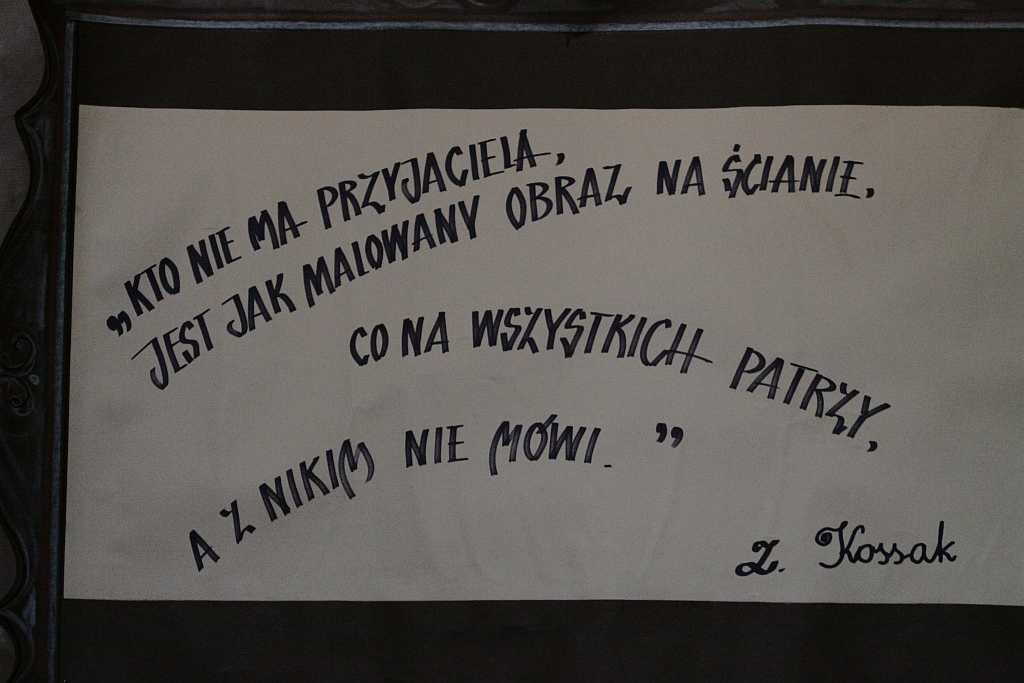 „KTO NIE MA PRZYJACIELA,
JEST JAK MALOWANY OBRAZ NA ŚCIANIE,
CO NA WSZYSTKICH PATRZY,
A Z NIKIM NIE MÓWI. ”
Z. Kossak